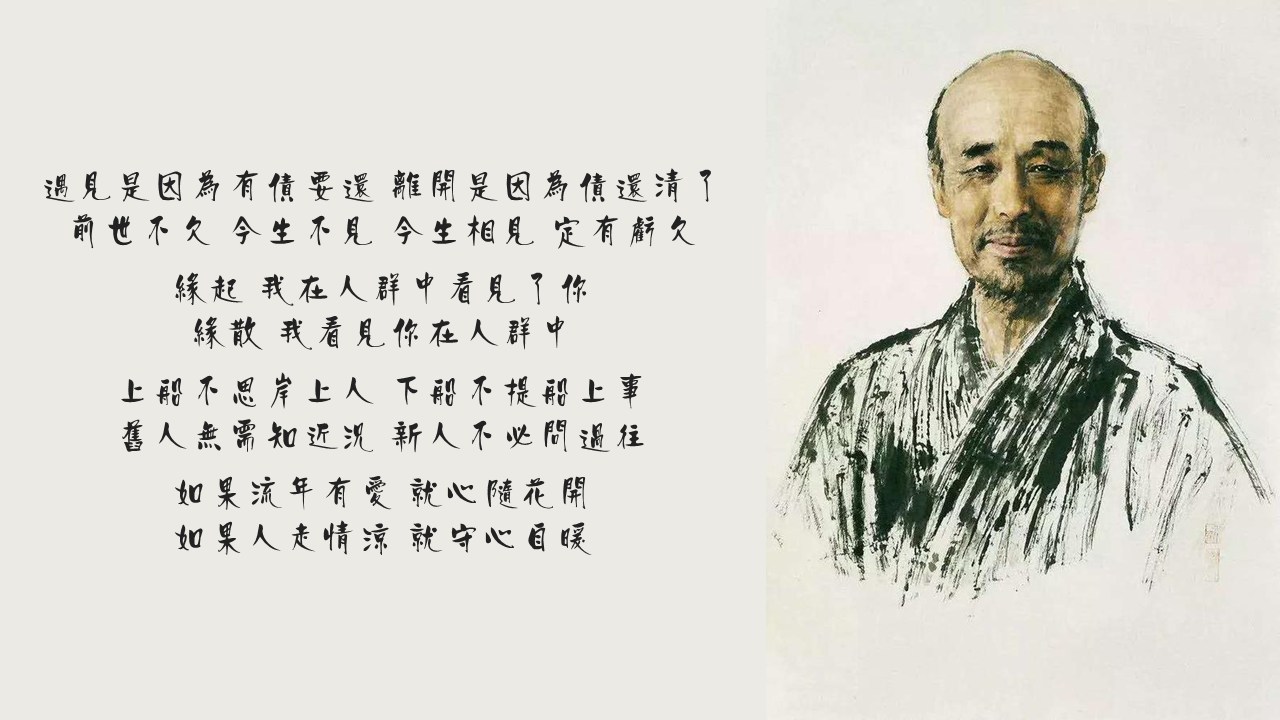 遇見是因為有債要還 離開是因為債還清了
前世不欠 今生不見 今生相見 定有虧欠
緣起 我在人群中看見了你
緣散 我看見你在人群中
上船不思岸上人 下船不提船上事
舊人無需知近況 新人不必問過往
如果流年有愛 就心隨花開
如果人走情涼 就守心自暖